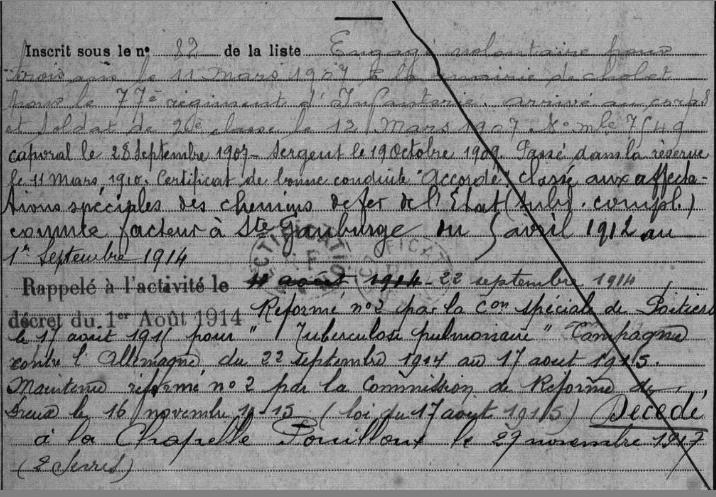 Inscrit sous le n° 82 de la liste Engagé volontaire pour
trois ans le 11 Mars 1907 à la mairie de cholet
pour le 77e régiment d'Infanterie. arrivé au corps
et soldat de 2e classe le 12 Mars 1907. No mle 7549
caporal le 28 Septembre 1907 - Sergent le 19 Octobre 1909. Passé dans la réserve
le 11 Mars 1910. Certificat de bonne conduite "Accordé". classé aux affecta-
tions spéciales des chemins de fer de l'Etat (subd. compl.)
comme facteur à Ste Gauburge du 5 avril 1912 au
1er Septembre 1914
Rappelé à l'activité le 11 août 1914 - 22 septembre 1914
décret du 1er Août 1914 Réformé n°2 par la Con spéciale de Poitiers
le 17 août 1915 pour "Tuberculose pulmonaire" Campagne
contre l'Allemagne du 22 septembre 1914 au 17 aout 1915.
Maintenu réformé n°2 par la Commission de Réforme de
le 16 novembre 1915 (loi du 17 août 1915) Décédé
à la Chapelle Pouilloux le 27 novembre 1917
(2 Sevres)